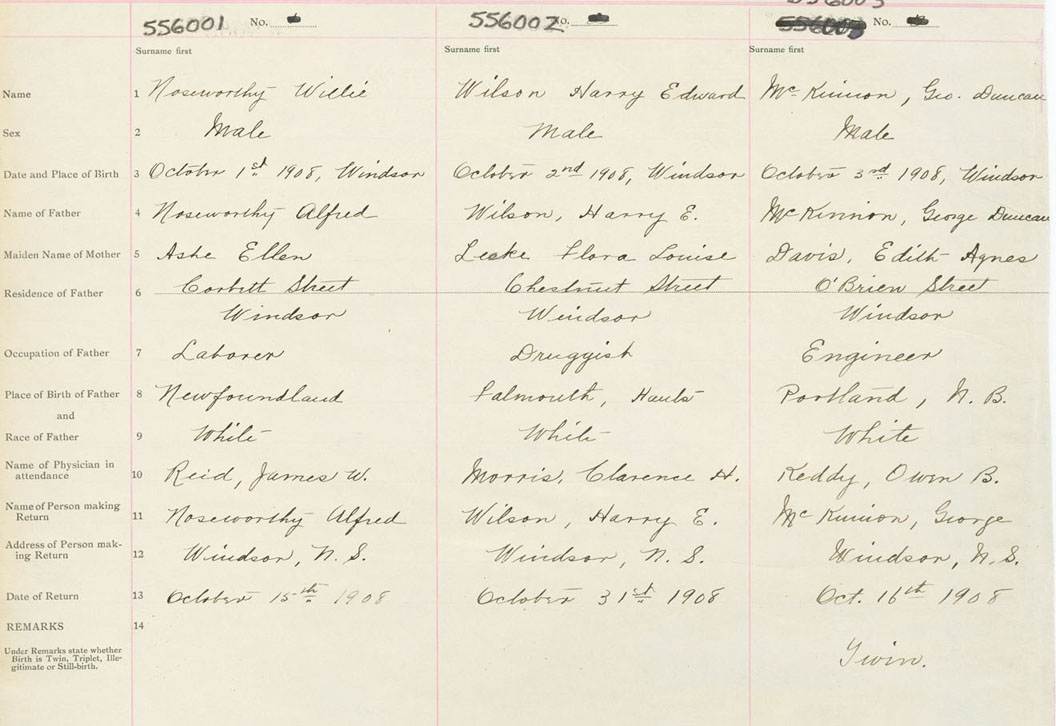 556003
556001 No.
556002 No.
No.
Surname first Surname first Surname first
Name 1 Noseworthy Willie Wilson Harry Edward McKinnon, Geo. Duncan
Sex 2 Male Male Male
Date and Place of Birth 3 October 1st 1908, Windsor October 2nd 1908, Windsor October 3rd 1908, Windsor
Name of Father 4 Noseworthy Alfred Wilson, Harry E. McKinnon, George Duncan
Maiden Name of Mother 5 Ashe Ellen Flora Louise Davis, Edith Agnes
Residence of Father 6 Corbett Street Chestnut Street O'Brien Street
Windsor Windsor Windsor
Occupation of Father 7 Laborer Druggist Engineer
Place of Birth of Father 8 Newfoundland Falmouth, Hants Portland, N. B.
and
Race of Father 9 White White White
Name of Physician in
attendance 10 Reid, James W. Morris, Clarence H. Keddy, Owen B.
Name of Person making
Return 11 Noseworthy Alfred Wilson, Harry E. McKinnon, George
Address of Person mak-
ing Return 12 Windsor, N. S. Windsor, N. S. Windsor, N. S.
Date of Return 13 October 15th 1908 October 31st 1908 Oct. 16th 1908
REMARKS 14
Under Remarks state whether
Birth is Twin, Triplet, Ille-
gitimate or Still-birth.
Twin.